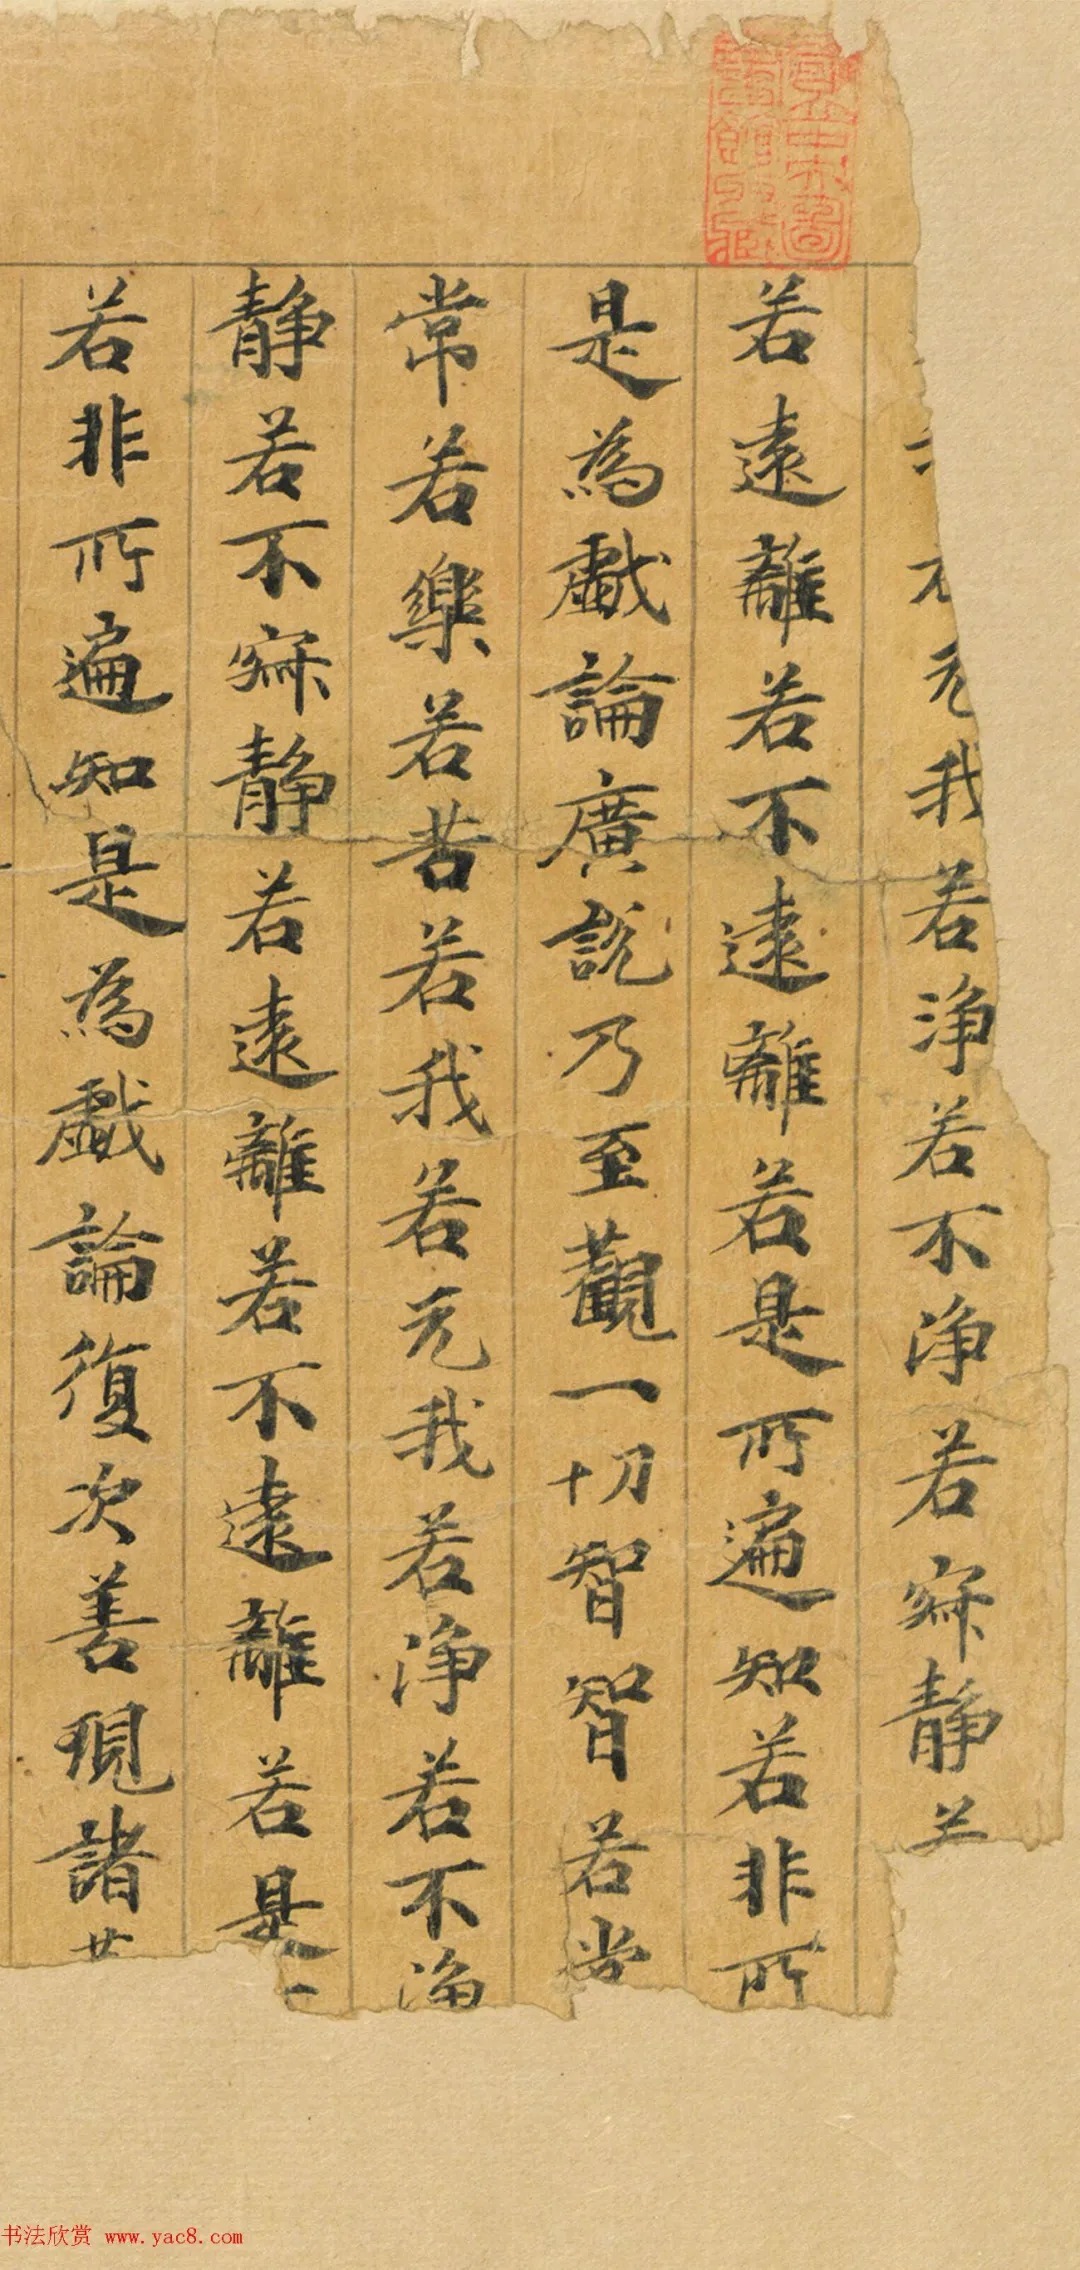 无我若浄若不浄若寂静
若遠離若不遠離若是所遍知若非所
是為戯論廣說乃至觀一切智智若常
常若樂若苦若我若无我若浄若不浄
静若不寂静若遠離若不遠離若是
若非所遍知是為戯論復次善現諸
书法欣赏 www.yac8.com